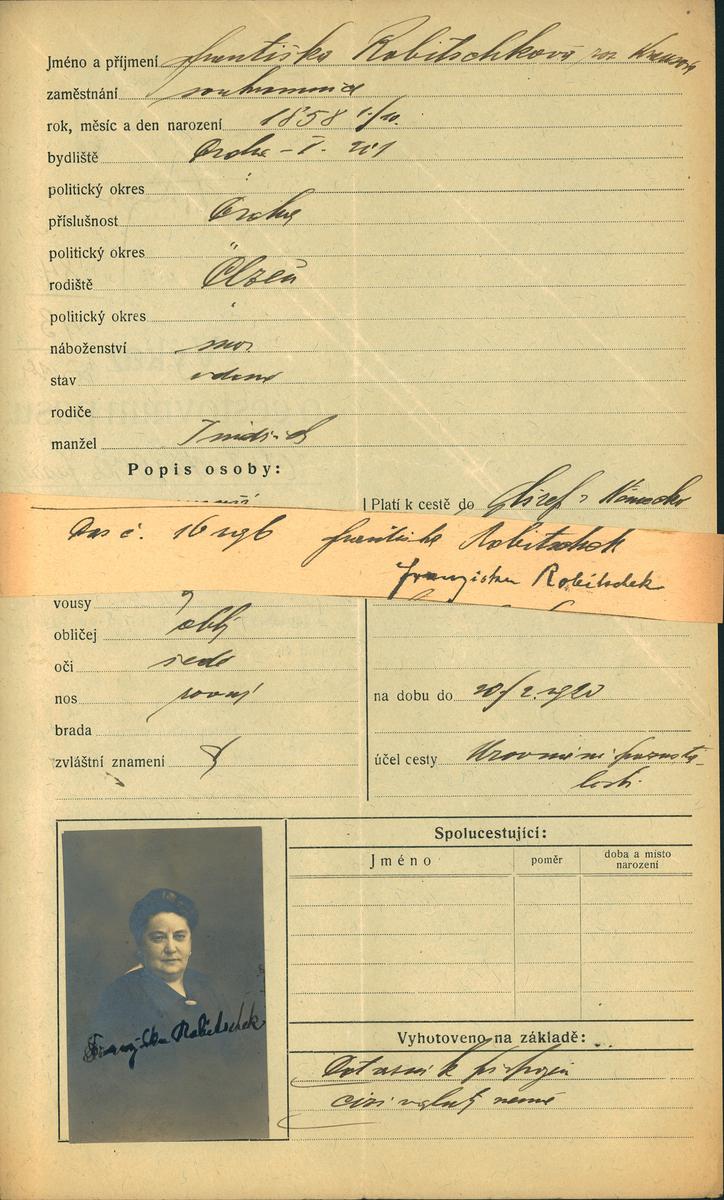 Jméno a příjmení Františka Robitschková roz.
zaměstnání soukromnice
rok, měsíc a den narození 1858 1./10.
bydliště Praha – I. 201
politický okres "
příslušnost Praha
politický okres "
rodiště Plzeň
politický okres "
náboženství moj.
stav vdova
rodiče
manžel Jindřich
Popis osoby:
Platí k cestě do Německa
Pas č. Františka Robitschek
Franziska Robitschek
vousy
obličej oblý
oči šedé
nos rovný
na dobu do 20/2. 1920
brada
zvláštní znamení
účel cesty Urovnání pozůsta-
losti.
Spolucestující:
Jméno poměr doba a místo narození
Franziska Robitschek
Vyhotoveno na základě:
Dotazník připojen
cizí valuty nemá